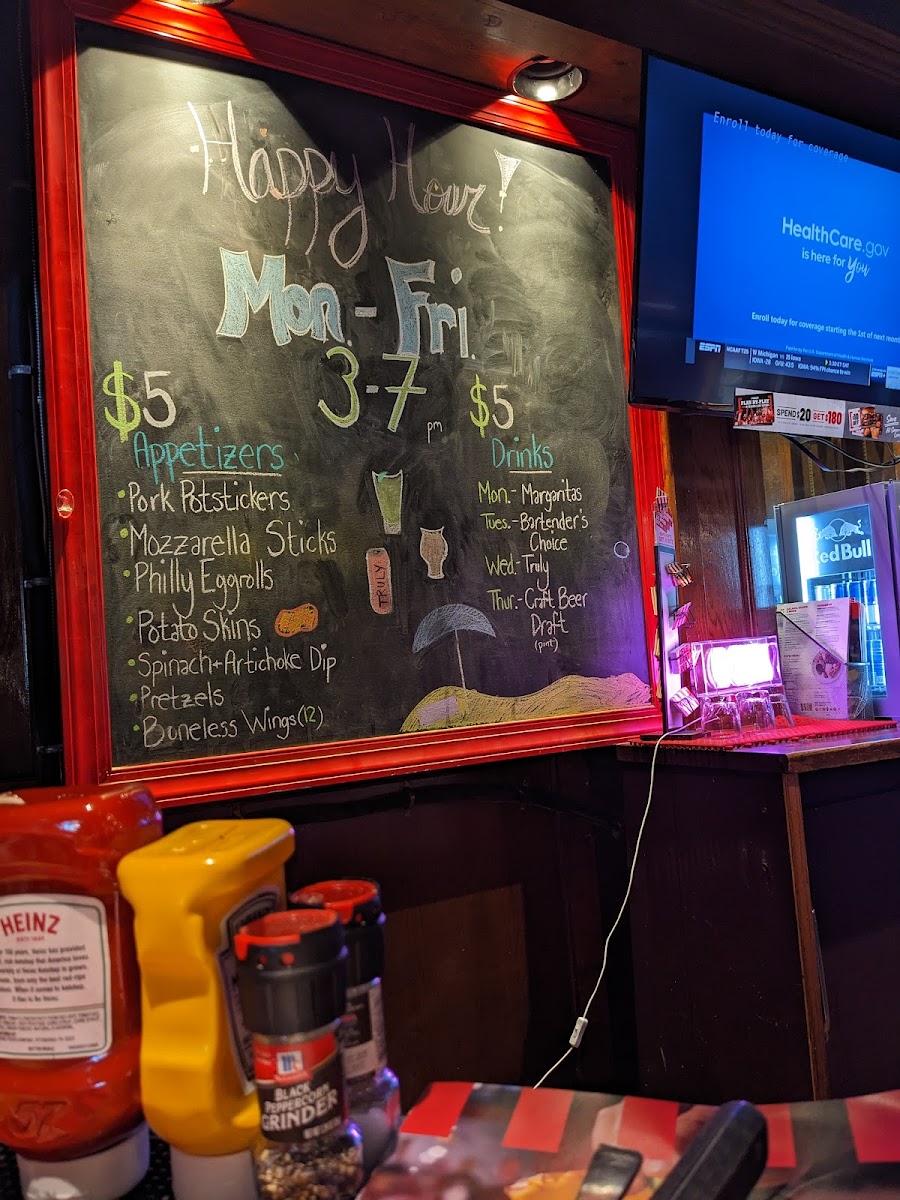 Happy Hour!
Mon.-Fri.
3-7
pm
$5
Appetizers
•Pork Potstickers
•Mozzarella Sticks
•Philly Eggrolls
•Potato Skins
•Spinach+Artichoke Dip
•Pretzels
•Boneless Wings(12)
$5
Drinks
Mon.- Margaritas
Tues.-Bartender's
Choice
Wed.-Truly
Thur.-Craft Beer
Draft
(pint)
TRULY
Enroll today for coverage
HealthCare.gov
is here for You
Enroll today for coverage starting the 1st of next month
ESPN
SPEND $20 GET $180
RedBull
HEINZ
McCormick
BLACK
PEPPERCORN
GRINDER
57